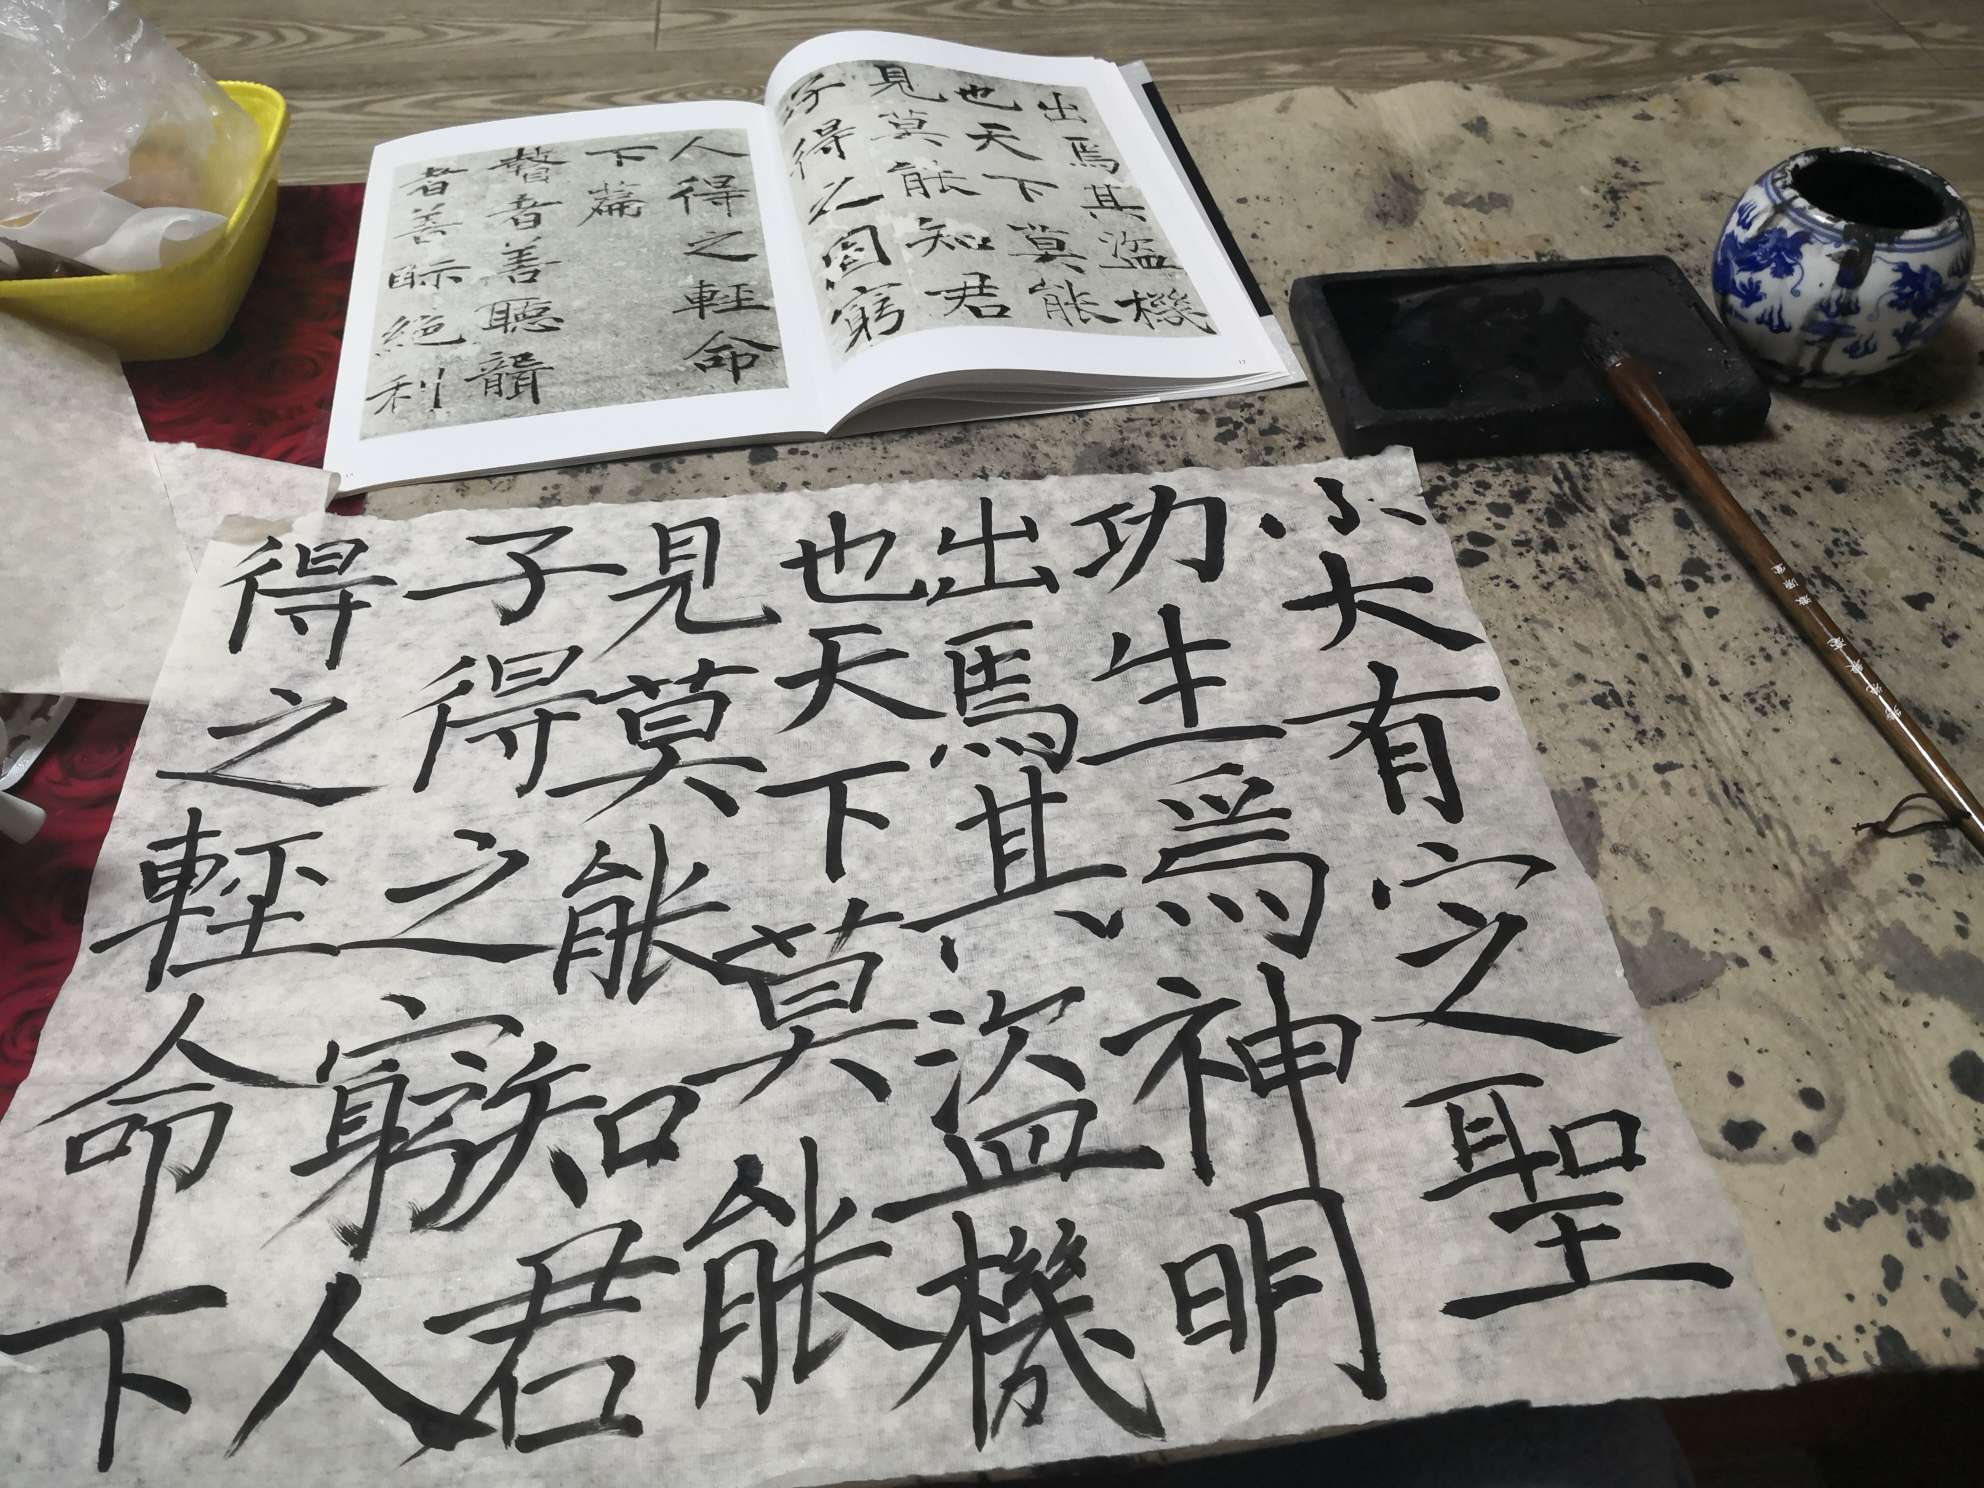 出焉其盗機
也天下莫能
見莫能知君
子得之固窮
人得之輕命
下篇
瞽者善聽聾
者善眎絕利
17
小大有定聖
功生爲神明
出焉其盗機
也天下莫能
見莫能知君
子得之窮人
得之輕命下